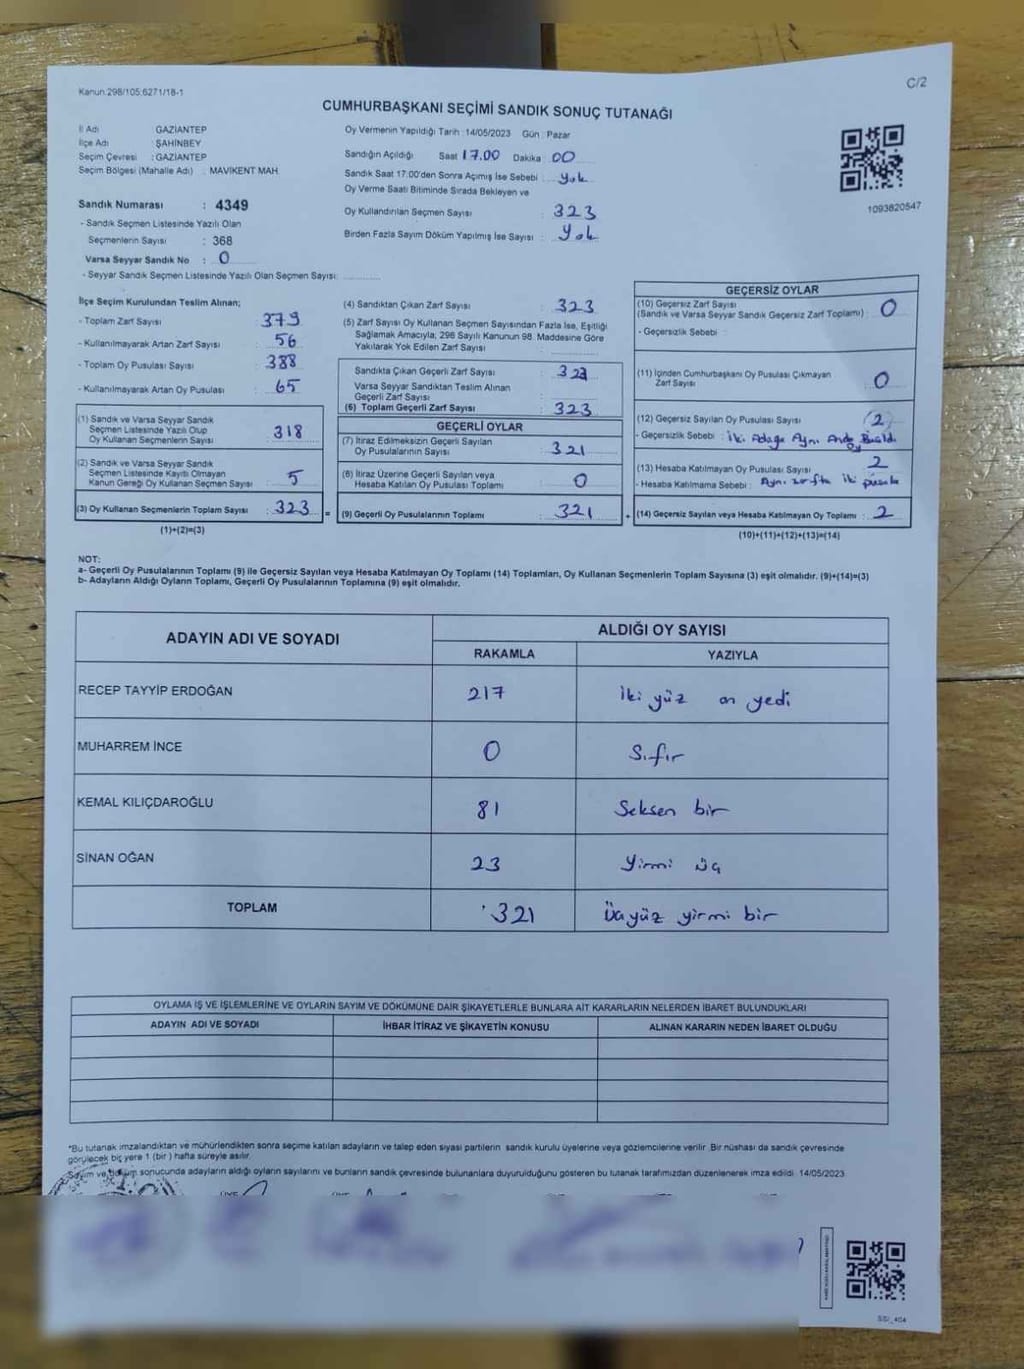 C/2
Kanun.298/105;6271/18-1
CUMHURBAŞKANI SEÇİMİ SANDIK SONUÇ TUTANAĞI
İl Adı GAZİANTEP
İlçe Adı ŞAHİNBEY
Seçim Çevresi : GAZİANTEP
Seçim Bölgesi (Mahalle Adı) : MAVİKENT MAH.
Sandık Numarası : 4349
- Sandık Seçmen Listesinde Yazılı Olan
Seçmenlerin Sayısı : 368
Varsa Seyyar Sandık No : 0
- Seyyar Sandık Seçmen Listesinde Yazılı Olan Seçmen Sayısı:
Oy Vermenin Yapıldığı Tarih : 14/05/2023 Gün : Pazar
Sandığın Açıldığı Saat 17.00 Dakika 00
Sandık Saat 17:00'den Sonra Açımış İse Sebebi : Yok
Oy Verme Saati Bitiminde Sırada Bekleyen ve
Oy Kullandırılan Seçmen Sayısı : 323
Birden Fazla Sayım Döküm Yapılmış İse Sayısı : Yok
1093820547
İlçe Seçim Kurulundan Teslim Alınan;
- Toplam Zarf Sayısı : 379
- Kullanılmayarak Artan Zarf Sayısı : 56
- Toplam Oy Pusulası Sayısı : 388
- Kullanılmayarak Artan Oy Pusulası : 65
(1) Sandık ve Varsa Seyyar Sandık
Seçmen Listesinde Yazılı Olup
Oy Kullanan Seçmenlerin Sayısı : 318
(2) Sandık ve Varsa Seyyar Sandık
Seçmen Listesinde Kayıtlı Olmayan
Kanun Gereği Oy Kullanan Seçmen Sayısı : 5
(3) Oy Kullanan Seçmenlerin Toplam Sayısı : 323 =
(1)+(2)=(3)
(4) Sandıktan Çıkan Zarf Sayısı : 323
(5) Zarf Sayısı Oy Kullanan Seçmen Sayısından Fazla İse, Eşitliği
Sağlamak Amacıyla, 298 Sayılı Kanunun 98. Maddesine Göre
Yakılarak Yok Edilen Zarf Sayısı :
Sandıkta Çıkan Geçerli Zarf Sayısı : 323
Varsa Seyyar Sandıktan Teslim Alınan
Geçerli Zarf Sayısı :
(6) Toplam Geçerli Zarf Sayısı : 323
GEÇERLİ OYLAR
(7) İtiraz Edilmeksizin Geçerli Sayılan
Oy Pusulalarının Sayısı : 321
(8) İtiraz Üzerine Geçerli Sayılan veya
Hesaba Katılan Oy Pusulası Toplamı : 0
(9) Geçerli Oy Pusulalarının Toplamı : 321 +
GEÇERSİZ OYLAR
(10) Geçersiz Zarf Sayısı
(Sandık ve Varsa Seyyar Sandık Geçersiz Zarf Toplamı) : 0
- Geçersizlik Sebebi :
(11) İçinden Cumhurbaşkanı Oy Pusulası Çıkmayan
Zarf Sayısı : 0
(12) Geçersiz Sayılan Oy Pusulası Sayısı : (2)
- Geçersizlik Sebebi : İki Adaya Aynı Anda Oy
(13) Hesaba Katılmayan Oy Pusulası Sayısı : 2
- Hesaba Katılmama Sebebi : Aynı zarfta iki pusula
(14) Geçersiz Sayılan veya Hesaba Katılmayan Oy Toplamı : 2
(10)+(11)+(12)+(13)=(14)
NOT:
a- Geçerli Oy Pusulalarının Toplamı (9) ile Geçersiz Sayılan veya Hesaba Katılmayan Oy Toplamı (14) Toplamları, Oy Kullanan Seçmenlerin Toplam Sayısına (3) eşit olmalıdır. (9)+(14)=(3)
b- Adayların Aldığı Oyların Toplamı, Geçerli Oy Pusulalarının Toplamına (9) eşit olmalıdır.
ADAYIN ADI VE SOYADI ALDIĞI OY SAYISI
RAKAMLA YAZIYLA
RECEP TAYYİP ERDOĞAN 217 İki yüz on yedi
MUHARREM İNCE 0 Sıfır
KEMAL KILIÇDAROĞLU 81 Seksen bir
SİNAN OĞAN 23 Yirmi üç
TOPLAM 321 Üçyüz yirmi bir
OYLAMA İŞ VE İŞLEMLERİNE VE OYLARIN SAYIM VE DÖKÜMÜNE DAİR ŞİKAYETLERLE BUNLARA AİT KARARLARIN NELERDEN İBARET BULUNDUKLARI
ADAYIN ADI VE SOYADI İHBAR İTİRAZ VE ŞİKAYETİN KONUSU ALINAN KARARIN NEDEN İBARET OLDUĞU
*Bu tutanak imzalandıktan ve mühürlendikten sonra seçime katılan adayların ve talep eden siyasi partilerin sandık kurulu üyelerine veya gözlemcilerine verilir. Bir nüshası da sandık çevresinde
görülecek bir yere 1 (bir) hafta süreyle asılır.
Sayım ve döküm sonucunda adayların aldığı oyların sayılarını ve bunların sandık çevresinde bulunanlara duyurulduğunu gösteren bu tutanak tarafımızdan düzenlenerek imza edildi. 14/05/2023